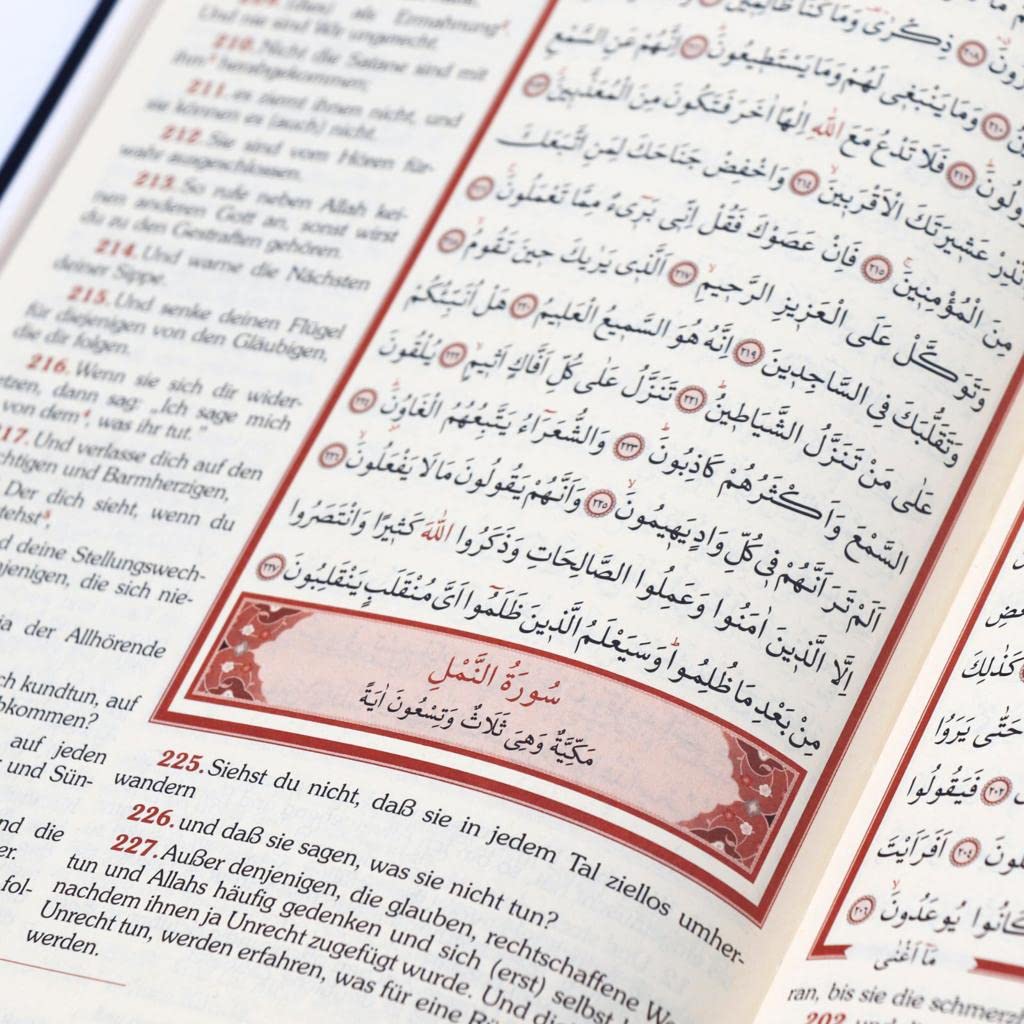 210. Nicht die Satane sind mit
ihm herabgekommen;
211. es ziemt ihnen nicht, und
sie können es (auch) nicht.
212. Sie sind vom Hören für-
wahr ausgeschlossen.
213. So rufe neben Allah kei-
nen anderen Gott an, sonst wirst
du zu den Gestraften gehören.
214. Und warne die Nächsten
deiner Sippe.
215. Und senke deinen Flügel
für diejenigen von den Gläubigen,
die dir folgen.
216. Wenn sie sich dir wider-
etzen, dann sag: „Ich sage mich
von dem⁴, was ihr tut."
217. Und verlasse dich auf den
chtigen und Barmherzigen,
Der dich sieht, wenn du
tehst⁵,
d deine Stellungswech-
njenigen, die sich nie-
a der Allhörende
ch kundtun, auf
bkommen?
auf jeden
und Sün-
nd die
er.
fol-
ذِكْرٰى وَمَا كُنَّا ظَالِم۪ينَ
وَمَا يَنْبَغ۪ي لَهُمْ وَمَا يَسْتَط۪يعُونَ ﴿٢١١﴾ اِنَّهُمْ عَنِ السَّمْعِ
فَلَا تَدْعُ مَعَ اللّٰهِ اِلٰهًا اٰخَرَ فَتَكُونَ مِنَ الْمُعَذَّب۪ينَ ﴿٢١٣﴾
عَش۪يرَتَكَ الْاَقْرَب۪ينَ ﴿٢١٤﴾ وَاخْفِضْ جَنَاحَكَ لِمَنِ اتَّبَعَكَ
مِنَ الْمُؤْمِن۪ينَ ﴿٢١٥﴾ فَاِنْ عَصَوْكَ فَقُلْ اِنّ۪ي بَر۪ٓيءٌ مِمَّا تَعْمَلُونَ ﴿٢١٦﴾
وَتَوَكَّلْ عَلَى الْعَز۪يزِ الرَّح۪يمِ ﴿٢١٧﴾ اَلَّذ۪ي يَرٰيكَ ح۪ينَ تَقُومُ ﴿٢١٨﴾
وَتَقَلُّبَكَ فِي السَّاجِد۪ينَ ﴿٢١٩﴾ اِنَّهُ هُوَ السَّم۪يعُ الْعَل۪يمُ ﴿٢٢٠﴾ هَلْ اُنَبِّئُكُمْ
عَلٰى مَنْ تَنَزَّلُ الشَّيَاط۪ينُ ﴿٢٢١﴾ تَنَزَّلُ عَلٰى كُلِّ اَفَّاكٍ اَث۪يمٍ ﴿٢٢٢﴾ يُلْقُونَ
السَّمْعَ وَاَكْثَرُهُمْ كَاذِبُونَ ﴿٢٢٣﴾ وَالشُّعَرَٓاءُ يَتَّبِعُهُمُ الْغَاوُ۫نَ ﴿٢٢٤﴾
اَلَمْ تَرَ اَنَّهُمْ ف۪ي كُلِّ وَادٍ يَه۪يمُونَ ﴿٢٢٥﴾ وَاَنَّهُمْ يَقُولُونَ مَا لَا يَفْعَلُونَ ﴿٢٢٦﴾
اِلَّا الَّذ۪ينَ اٰمَنُوا وَعَمِلُوا الصَّالِحَاتِ وَذَكَرُوا اللّٰهَ كَث۪يرًا وَانْتَصَرُوا
مِنْ بَعْدِ مَا ظُلِمُوا وَسَيَعْلَمُ الَّذ۪ينَ ظَلَمُٓوا اَيَّ مُنْقَلَبٍ يَنْقَلِبُونَ ﴿٢٢٧﴾
سُورَةُ النَّمْلِ
مَكِّيَّةٌ وَهِيَ ثَلَاثٌ وَتِسْعُونَ اٰيَةً
225. Siehst du nicht, daß sie in jedem Tal ziellos umher-
wandern
226. und daß sie sagen, was sie nicht tun?
227. Außer denjenigen, die glauben, rechtschaffene We
tun und Allahs häufig gedenken und sich (erst) selbst
nachdem ihnen ja Unrecht zugefügt wurde. Und di
Unrecht tun, werden erfahren, was für eine
werden.
كَذٰلِكَ
حَتّٰى يَرَوُا
﴿٢٠٢﴾ فَيَقُولُوا
﴿٢٠٤﴾ اَفَرَاَيْتَ
كَانُوا يُوعَدُونَ ﴿٢٠٦﴾
مَٓا اَغْنٰى
ran, bis sie die schmerzh
202.